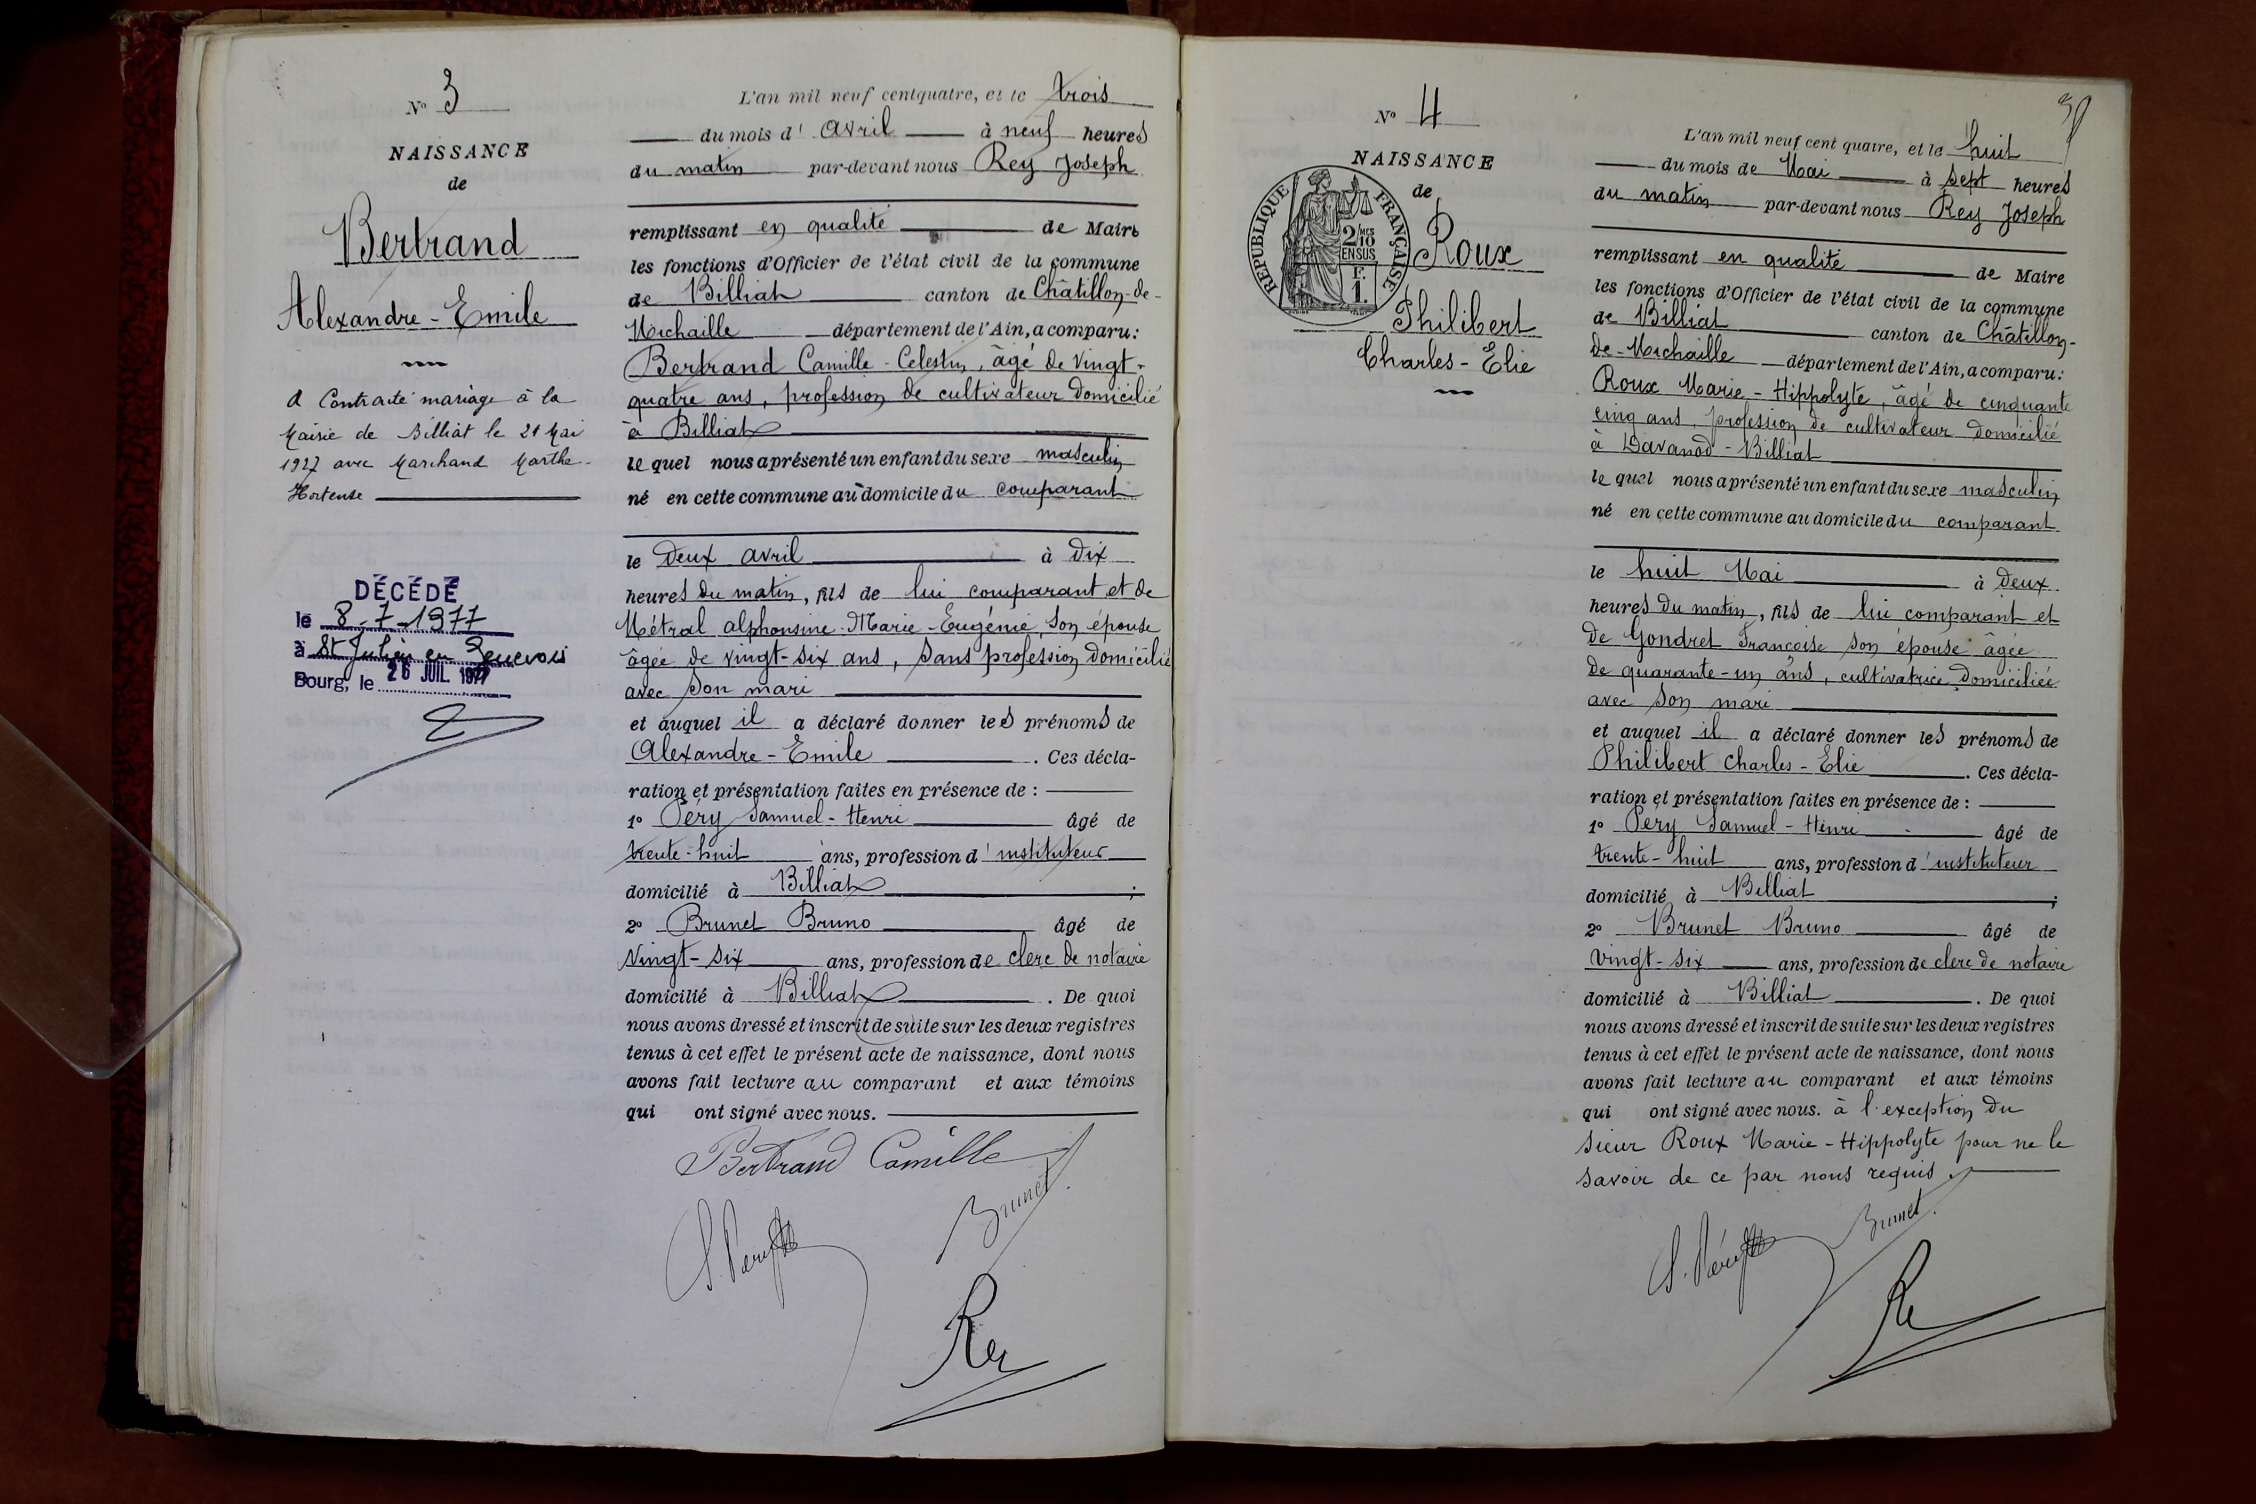 N° 3
NAISSANCE
de
Bertrand
Alexandre-Emile
A Contracté mariage à la
Mairie de Billiat le 21 Mai
1927 avec Marchand Marthe-
Hortense
DÉCÉDÉ
le 8-7-1977
à St Julien en Genevois
Bourg, le 26 JUIL. 1977
L'an mil neuf cent quatre, et le trois
du mois d'Avril à neuf heures
du matin par-devant nous Rey Joseph
remplissant en qualité de Maire
les fonctions d'Officier de l'état civil de la commune
de Billiat canton de Châtillon-de-
Michaille département de l'Ain, a comparu:
Bertrand Camille-Celestin, âgé de vingt-
quatre ans, profession de cultivateur domicilié
à Billiat
lequel nous a présenté un enfant du sexe masculin
né en cette commune au domicile du comparant
le Deux avril à Dix
heures du matin, fils de lui comparant et de
Métral alphonsine-Marie-Eugénie, son épouse
âgée de vingt-six ans, sans profession domiciliée
avec son mari
et auquel il a déclaré donner les prénoms de
Alexandre-Emile. Ces décla-
ration et présentation faites en présence de :
1° Péry Samuel-Henri âgé de
trente-huit ans, profession d'instituteur
domicilié à Billiat ;
2° Brunet Bruno âgé de
vingt-six ans, profession de clerc de notaire
domicilié à Billiat. De quoi
nous avons dressé et inscrit de suite sur les deux registres
tenus à cet effet le présent acte de naissance, dont nous
avons fait lecture au comparant et aux témoins
qui ont signé avec nous.
Bertrand Camille
S. Péry
Brunet.
Rey
N° 4
NAISSANCE
de
RÉPUBLIQUE FRANÇAISE
2/10 MES
EN SUS
F.
1.
Roux
Philibert
Charles-Elie
L'an mil neuf cent quatre, et le huit
du mois de Mai à sept heures
du matin par-devant nous Rey Joseph
remplissant en qualité de Maire
les fonctions d'Officier de l'état civil de la commune
de Billiat canton de Châtillon-
de-Michaille département de l'Ain, a comparu:
Roux Marie-Hippolyte, âgé de cinquante
cinq ans, profession de cultivateur domicilié
à Davanod-Billiat
lequel nous a présenté un enfant du sexe masculin
né en cette commune au domicile du comparant
le huit Mai à Deux
heures du matin, fils de lui comparant et
de Gondret Françoise son épouse âgée
de quarante-un ans, cultivatrice domiciliée
avec son mari
et auquel il a déclaré donner les prénoms de
Philibert Charles-Elie. Ces décla-
ration et présentation faites en présence de :
1° Péry Samuel-Henri âgé de
trente-huit ans, profession d'instituteur
domicilié à Billiat ;
2° Brunet Bruno âgé de
vingt-six ans, profession de clerc de notaire
domicilié à Billiat. De quoi
nous avons dressé et inscrit de suite sur les deux registres
tenus à cet effet le présent acte de naissance, dont nous
avons fait lecture au comparant et aux témoins
qui ont signé avec nous. à l'exception du
sieur Roux Marie-Hippolyte pour ne le
savoir de ce par nous requis
S. Péry
Brunet.
Re